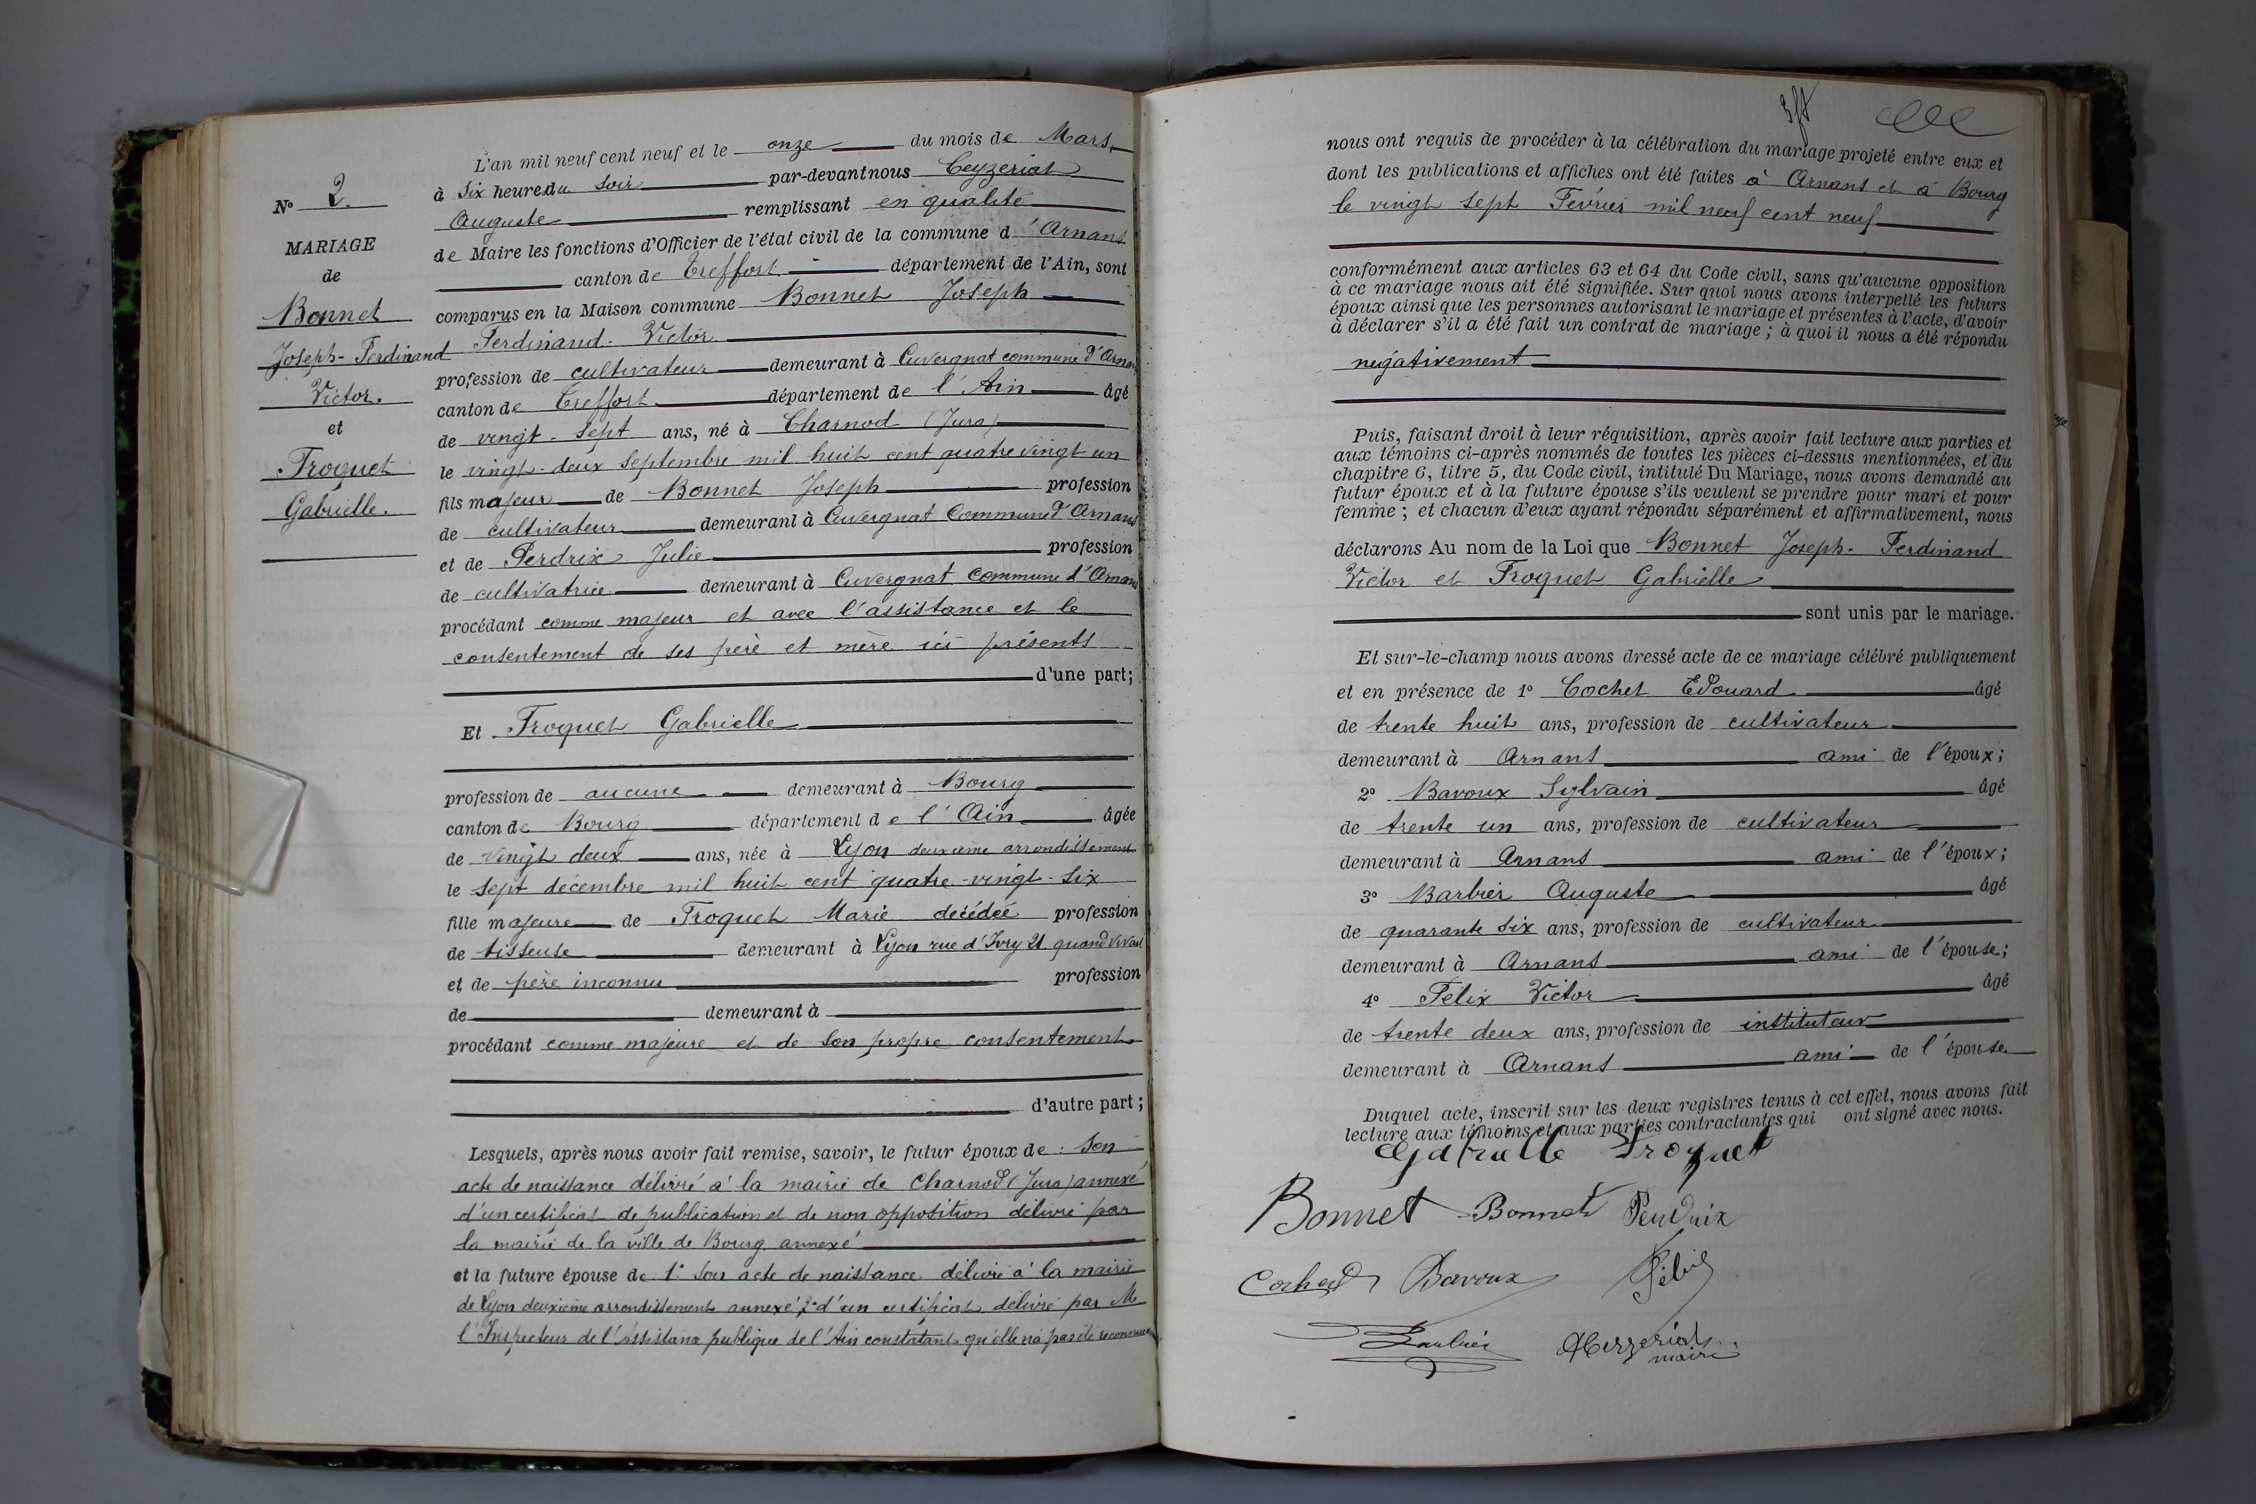 N° 2.
MARIAGE
de
Bonnet
Joseph-Ferdinand
Victor.
et
Troquet
Gabrielle.
L'an mil neuf cent neuf et le onze du mois de Mars,
à six heures du soir par-devant nous Ceyzeriat
Auguste remplissant en qualité
de Maire les fonctions d'Officier de l'état civil de la commune d'Arnans
canton de Treffort département de l'Ain, sont
comparus en la Maison commune Bonnet Joseph
Ferdinand-Victor
profession de cultivateur demeurant à Cuvergnat commune d'Arnans
canton de Treffort département de l'Ain âgé
de vingt-sept ans, né à Charnod (Jura)
le vingt-deux septembre mil huit cent quatre vingt un
fils majeur de Bonnet Joseph profession
de cultivateur demeurant à Cuvergnat Commune d'Arnans
et de Perdrix Julie profession
de cultivatrice demeurant à Cuvergnat commune d'Arnans
procédant comme majeur et avec l'assistance et le
consentement de ses père et mère ici présents
d'une part;
Et Troquet Gabrielle
profession de aucune demeurant à Bourg
canton de Bourg département de l'Ain âgée
de vingt deux ans, née à Lyon deuxième arrondissement
le sept décembre mil huit cent quatre-vingt-six
fille majeure de Troquet Marie décédée profession
de tisseuse demeurant à Lyon rue d'Ivry 21 quand vivait
et de père inconnu profession
de demeurant à
procédant comme majeure et de son propre consentement
d'autre part;
Lesquels, après nous avoir fait remise, savoir, le futur époux de: son
acte de naissance délivré à la mairie de Charnod (Jura) annexé
d'un certificat de publication et de non opposition délivré par
la mairie de la ville de Bourg annexé
et la future épouse de 1° son acte de naissance délivré à la mairie
de Lyon deuxième arrondissement annexé 2° d'un certificat délivré par M
l'Inspecteur de l'assistance publique de l'Ain constatant qu'elle n'a pas été reconnue
nous ont requis de procéder à la célébration du mariage projeté entre eux et
dont les publications et affiches ont été faites à Arnans et à Bourg
le vingt sept Février mil neuf cent neuf
conformément aux articles 63 et 64 du Code civil, sans qu'aucune opposition
à ce mariage nous ait été signifiée. Sur quoi nous avons interpellé les futurs
époux ainsi que les personnes autorisant le mariage et présentes à l'acte, d'avoir
à déclarer s'il a été fait un contrat de mariage; à quoi il nous a été répondu
négativement
Puis, faisant droit à leur réquisition, après avoir fait lecture aux parties et
aux témoins ci-après nommés de toutes les pièces ci-dessus mentionnées, et du
chapitre 6, titre 5, du Code civil, intitulé Du Mariage, nous avons demandé au
futur époux et à la future épouse s'ils veulent se prendre pour mari et pour
femme; et chacun d'eux ayant répondu séparément et affirmativement, nous
déclarons Au nom de la Loi que Bonnet Joseph-Ferdinand
Victor et Troquet Gabrielle
sont unis par le mariage.
Et sur-le-champ nous avons dressé acte de ce mariage célébré publiquement
et en présence de 1° Cochet Edouard âgé
de trente huit ans, profession de cultivateur
demeurant à Arnans ami de l'époux;
2° Bavoux Sylvain âgé
de trente un ans, profession de cultivateur
demeurant à Arnans ami de l'époux;
3° Barbier Auguste âgé
de quarante six ans, profession de cultivateur
demeurant à Arnans ami de l'épouse;
4° Félix Victor âgé
de trente deux ans, profession de instituteur
demeurant à Arnans ami de l'épouse
Duquel acte, inscrit sur les deux registres tenus à cet effet, nous avons fait
lecture aux témoins et aux parties contractantes qui ont signé avec nous.
Gabrielle Troquet
Bonnet Bonnet Perdrix
Cochet Bavoux Félix
Barbier ACeyzeriat
maire